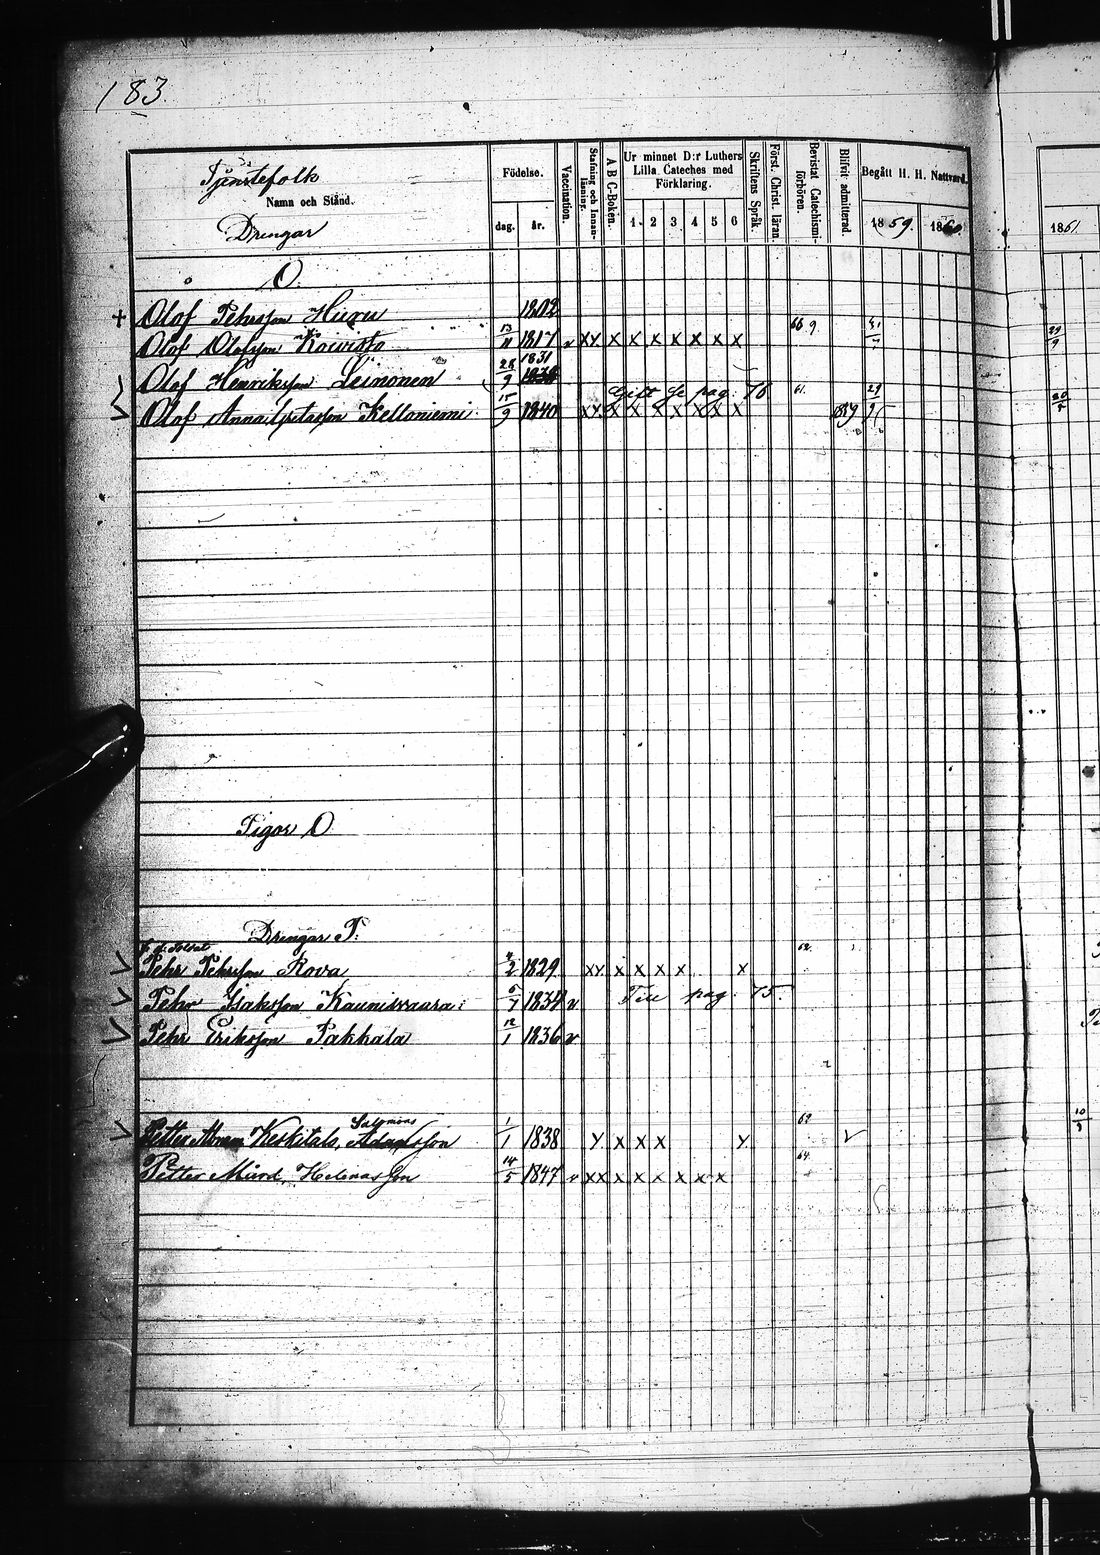 183
Tjenstefolk
Namn och Stånd.
Drengar
Födelse.
dag. år.
Vaccination.
Stafning och Innanläsning.
A B C-Boken.
Ur minnet D:r Luthers Lilla Cateches med Förklaring.
1. 2 3 4 5 6
Skriftens Språk.
Förståndi Christ. läran.
Bevistat Catechismiförhören.
Blifvit admitterad.
Begått H. H. Nattvard.
1859. 1860
1861
O.
+ Olof Pehrsson Huru 1802
Olof Olofsson Koivisto 13/11 1817 v XX X X X X X X X 66 9.
Olof Henriksson Leinonen 28/9 1831
Gift se pag. 76 61.
Olof Anna Gretasson Kelloniemi 15/9 1840 XX X X X X X X X 1859
Pigor O
Drengar P:
f. d. Soldat
Pehr Pehrsson Rova 4/2 1829 XX X X X X X 62.
Pehr Isaksson Kaunisvaara: 6/7 1834 v Till pag. 75.
Pehr Eriksson Pakkala 12/1 1836 v
Salomons
Petter Keskitalo, Adamsson 1/1 1838 X X X X X 62
Petter Mård, Helenasson 14/5 1847 v XX X X X X X X 64.